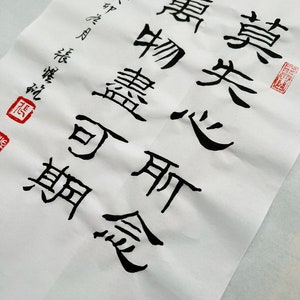 莫失心所念
萬物盡可期
卯 月 張